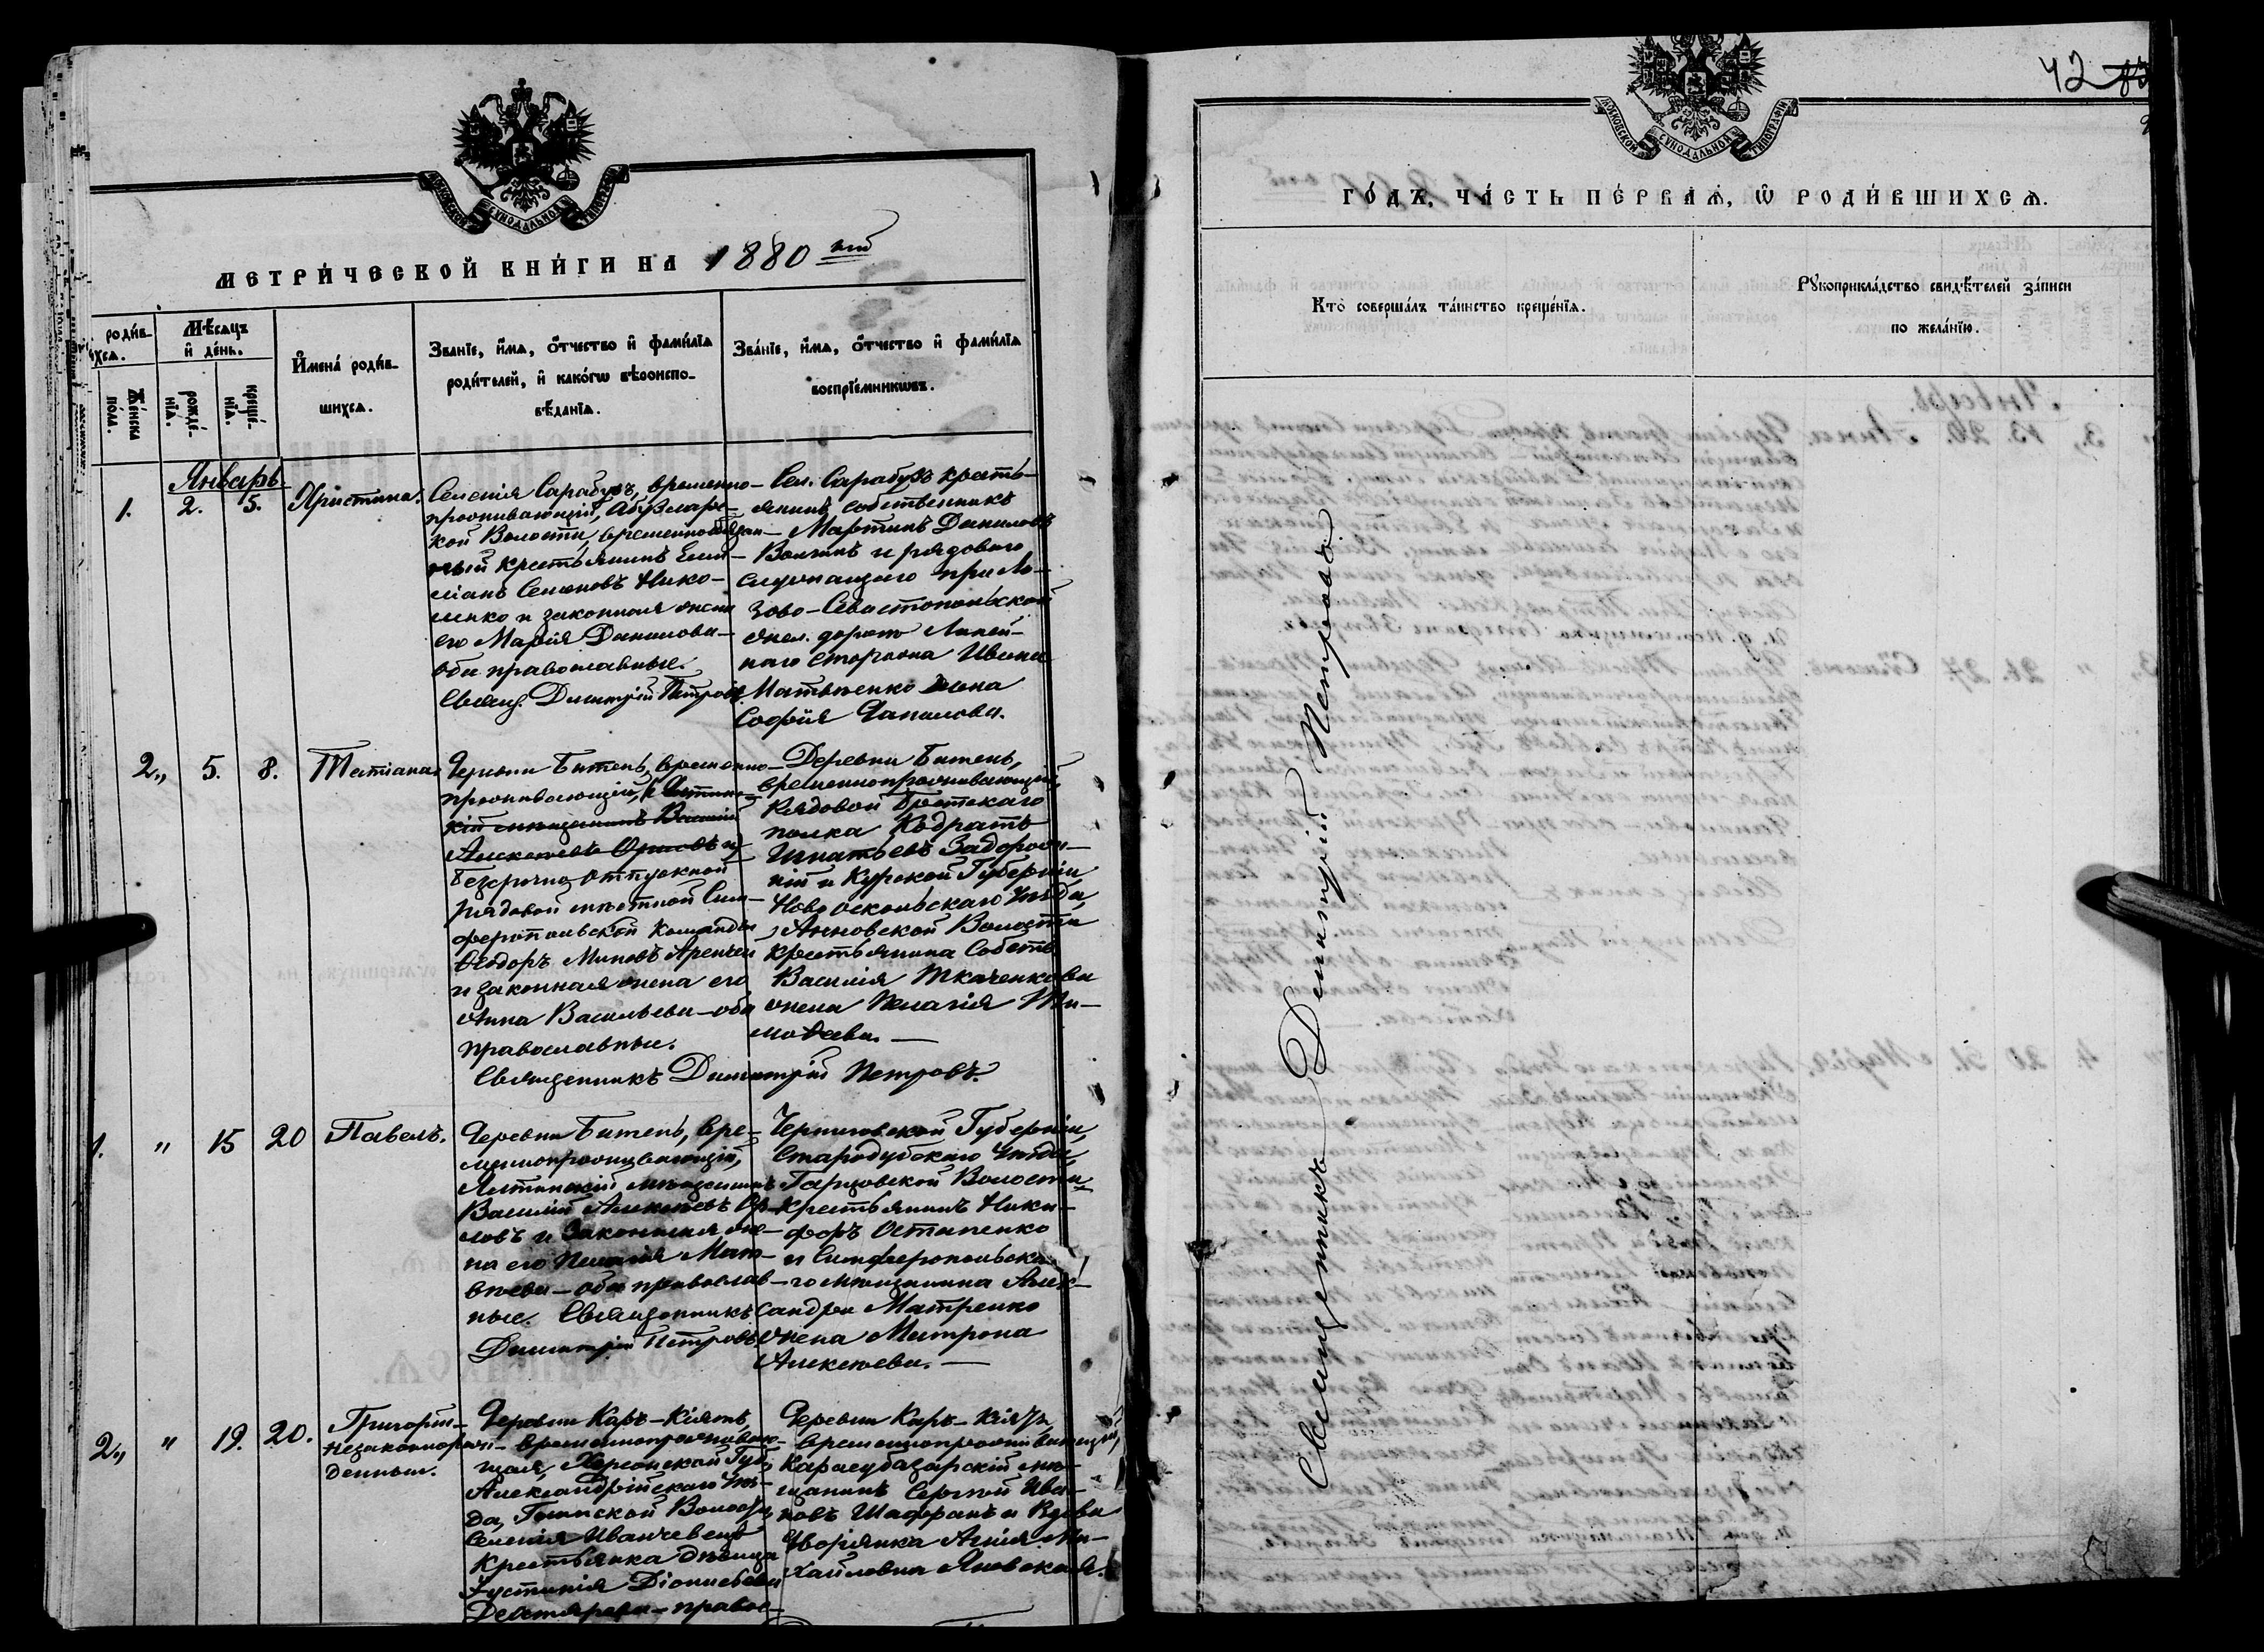 МОСКОВСКОЙ СУНОДАЛЬНОЙ ТИПОГРАФІИ
МЕТРИ́ЧЕСКОЙ КНИ́ГИ НА 1880 ый
роди́в-
ихсѧ.
Же́нска по́ла.
Мѣ́сѧцъ и҆ де́нь.
рожде́-нїѧ.
креще́-нїѧ.
И҆мена̀ роди́в-
шихсѧ.
Зва́нїе, и҆́мѧ, ѻ҆́тчество и҆ фами́лїѧ
роди́телей, и҆ како́гѡ вѣроиспо-
вѣ́данїѧ.
Зва́нїе, и҆́мѧ, ѻ҆́тчество и҆ фами́лїѧ
воспрїе́мникѡвъ.
Январь
1. 2. 5. Христина.
Селенія Сарабузъ, временно-
проживающій,
кой Волости, временнообязан-
ный крестьянинъ Еми-
ліанъ Семеновъ Нико-
ленко и законная жена
его Марія Данилова-
оба православные.
Священ. Димитрій Петровъ.
Сел. Сарабузъ кресть-
янинъ собственникъ
Мартинъ Даниловъ
и рядового
служащаго при Ло-
зово-Севастопольской
жел. дороге Линей-
наго сторожа Ивана
Матвѣенко жена
Софія
2" 5. 8. Татіана.
Деревни Битень, временно-
проживающій, Ялтинс-
кій мещанинъ Василій
Алексѣевъ Орловъ и
безсрочно отпускной
рядовой мѣстной Сим-
феропольской команды
Ѳеодоръ Миновъ
и законная жена его
Анна Васильева-оба
православные.
Священникъ Димитрій Петровъ.
Деревни Битень,
временнопроживающій,
Рядовой Брестскаго
полка Кодратъ
Игнатьевъ Задорож-
ній и Курской Губерніи
Новооскольскаго Уѣзда,
Анновской Волости
крестьянина Собств.
Василія Ткаченкова
жена Пелагія Ти-
моѳеева.
1. " 15 20 Павелъ.
Деревни Битень, вре-
меннопроживающій,
Ялтинскій мѣщанинъ
Василій Алексѣевъ Ор-
ловъ и Законная же-
на его Пелагія Мат-
вѣева-оба православ-
ные. Священникъ
Димитрій Петровъ
Черниговской Губерніи,
Стародубскаго Уѣзда,
Гарцовской Волости
крестьянинъ Ники-
форъ Остапенко
и Симферопольска-
го мѣщанина Алек-
сандра Матренко
жена Матрона
Алексѣева.
2" " 19. 20. Григорій-
незаконнорож-
денный.
Деревни Каръ-Кіятъ,
временнопроживаю-
щая, Херсонской Губ.
Александрійскаго Уѣз-
да, Волости
Селенія
Крестьянка дѣвица
Іустинія Діонисьева
Дегтярева-правос-
Деревни Каръ-Кіятъ
временнопроживающій,
Карасубазарскій мѣ-
щанинъ Сергѣй Ива-
новъ Шафранъ и Вдова
Дворянка Агнія Ми-
хайловна Яновская.
42
МОСКОВСКОЙ СУНОДАЛЬНОЙ ТИПОГРАФІИ
ГО́ДЪ, ЧА́СТЬ ПЕ́РВАѦ, Ѡ҆ РОДИ́ВШИХСѦ.
Кто̀ соверша́лъ та́инство креще́нїѧ.
Рꙋкоприкла́дство свидѣ́телей за́писи
по жела́нїю.
Священникъ Димитрій Петровъ